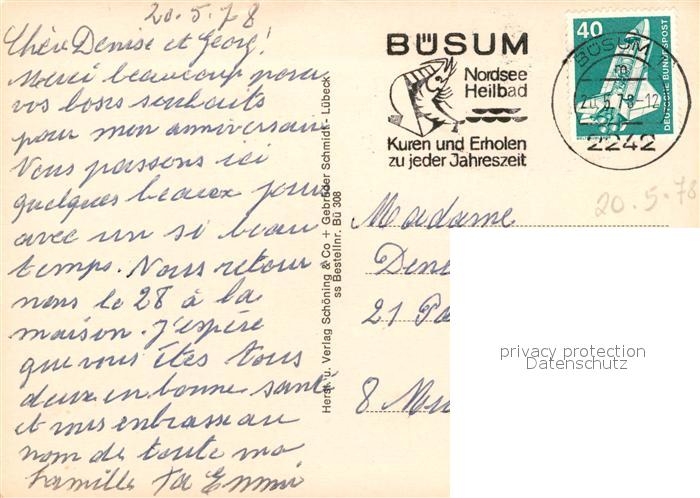 20.5.78
Chère Denise et Georg!
Merci beaucoup pour
vos bons souhaits
pour mon anniversaire
Nous passons ici
quelques beaux jours
avec un si beau
temps. Nous retour
nons le 28 à la
maison. J'espère
que vous êtes tous
deux en bonne santé
et vous embrasse au
nom de toute ma
famille Ta Emmi
Herst. u. Verlag Schöning & Co + Gebrüder Schmidt - Lübeck
ss Bestellnr. Bü 308
BÜSUM
Nordsee
Heilbad
Kuren und Erholen
zu jeder Jahreszeit
40
DEUTSCHE BUNDESPOST
BÜSUM
20.5.78-12
2242
20.5.78
Madame
Den
21
8
privacy protection
Datenschutz